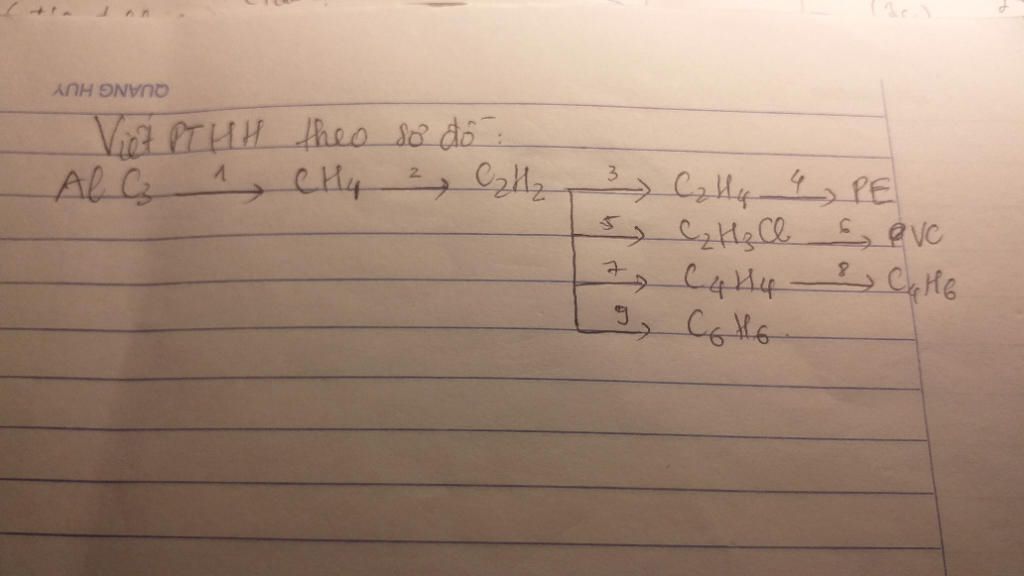 QUANG HUY
Viết PTHH theo sơ đồ:
Al C3 —1→ CH4 —2→ C2H2 —3→ C2H4 —4→ PE
—5→ C2H3Cl —6→ PVC
—7→ C4H4 —8→ C4H6
—9→ C6H6.